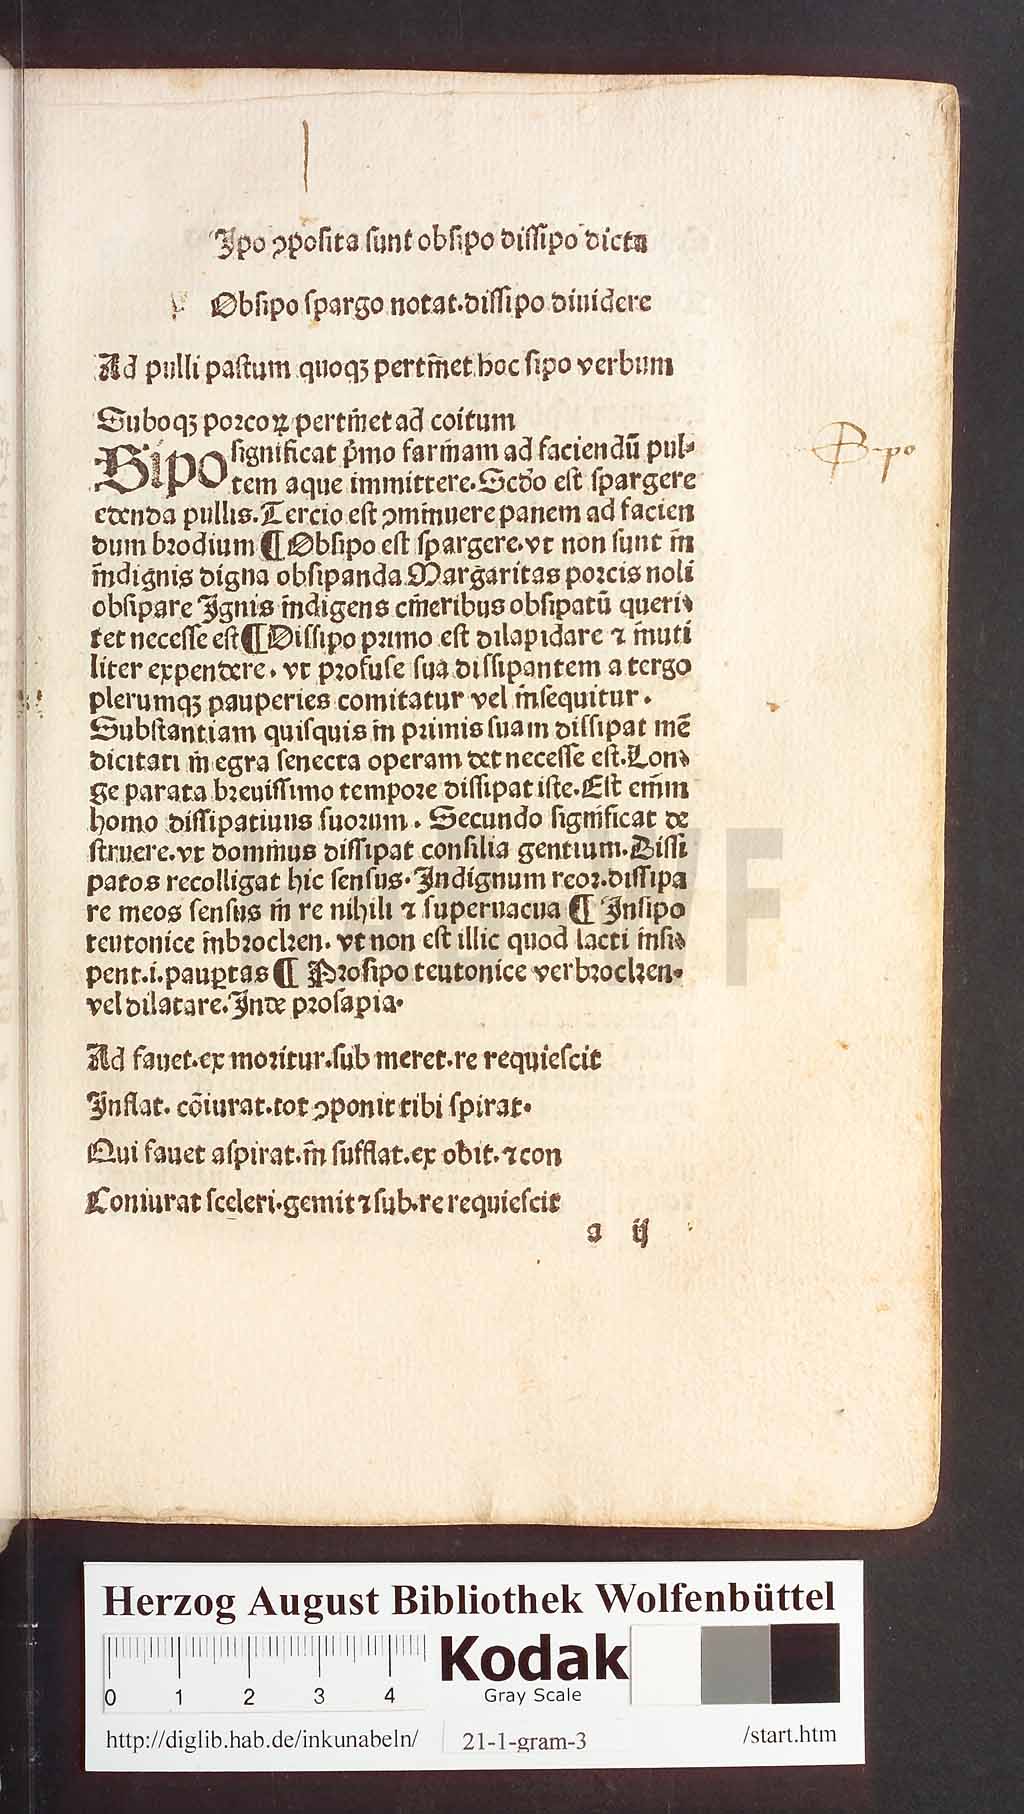 Ipo ꝯposita sunt obsipo dissipo dicta
Obsipo spargo notat.dissipo diuidere
Ad pulli pastum quoqꝫ pertin̄et hoc sipo verbum
Suboqꝫ porcoꝝ pertin̄et ad coitum
Sipo significat p̄mo farin̄am ad faciendū pul⸗
tem aque immittere.Scd̄o est spargere
edenda pullis.Tercio est ꝯminuere panem ad facien
dum brodium ¶ Obsipo est spargere.vt non sunt in̄
in̄dignis digna obsipanda Margaritas porcis noli
obsipare Ignis in̄digens cin̄eribus obsipatū queri⸗
tet necesse est ¶ Dissipo primo est dilapidare ⁊ in̄uti
liter expendere. vt profuse sua dissipantem a tergo
plerumqꝫ pauperies comitatur vel in̄sequitur.
Substantiam quisquis in̄ primis suam dissipat mē
dicitati in̄ egra senecta operam det necesse est.Lon⸗
ge parata breuissimo tempore dissipat iste.Est enim
homo dissipatiuus suorum. Secundo significat de
struere.vt dominus dissipat consilia gentium.Dissi
patos recolligat hic sensus.Indignum reor.dissipa
re meos sensus in̄ re nihili ⁊ superuacua ¶ Insipo
teutonice in̄brocken. vt non est illic quod lacti in̄si⸗
pent.i.paup̱tas ¶ Prosipo teutonice verbrocken.
vel dilatare.Inde prosapia.
Ad fauet.ex moritur.sub meret.re requiescit
Inflat. cōiurat.tot ꝯponit tibi spirat.
Qui fauet aspirat.in̄ sufflat.ex obit.⁊ con
Coniurat sceleri.gemit ⁊ sub.re requiescit
a ij
Sipo
HAB WF
Herzog August Bibliothek Wolfenbüttel
0 1 2 3 4
Kodak
Gray Scale
http://diglib.hab.de/inkunabeln/ 21-1-gram-3 /start.htm